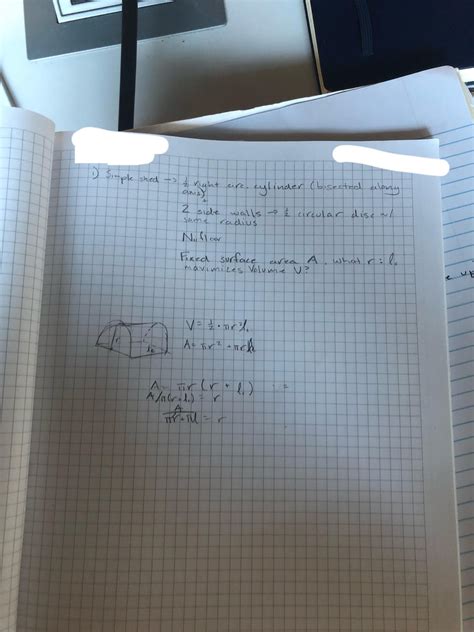 1) Simple shed → ½ right circ. cylinder (bisected along
axis)
2 side walls → ½ circular disc w/
same radius
No floor
Fixed surface area A, what r : l
maximizes Volume V?
V = ½ · πr²l
A = πr² + πrl
A = πr (r + l)
A/π(r+l) = r
A
πr+πl = r